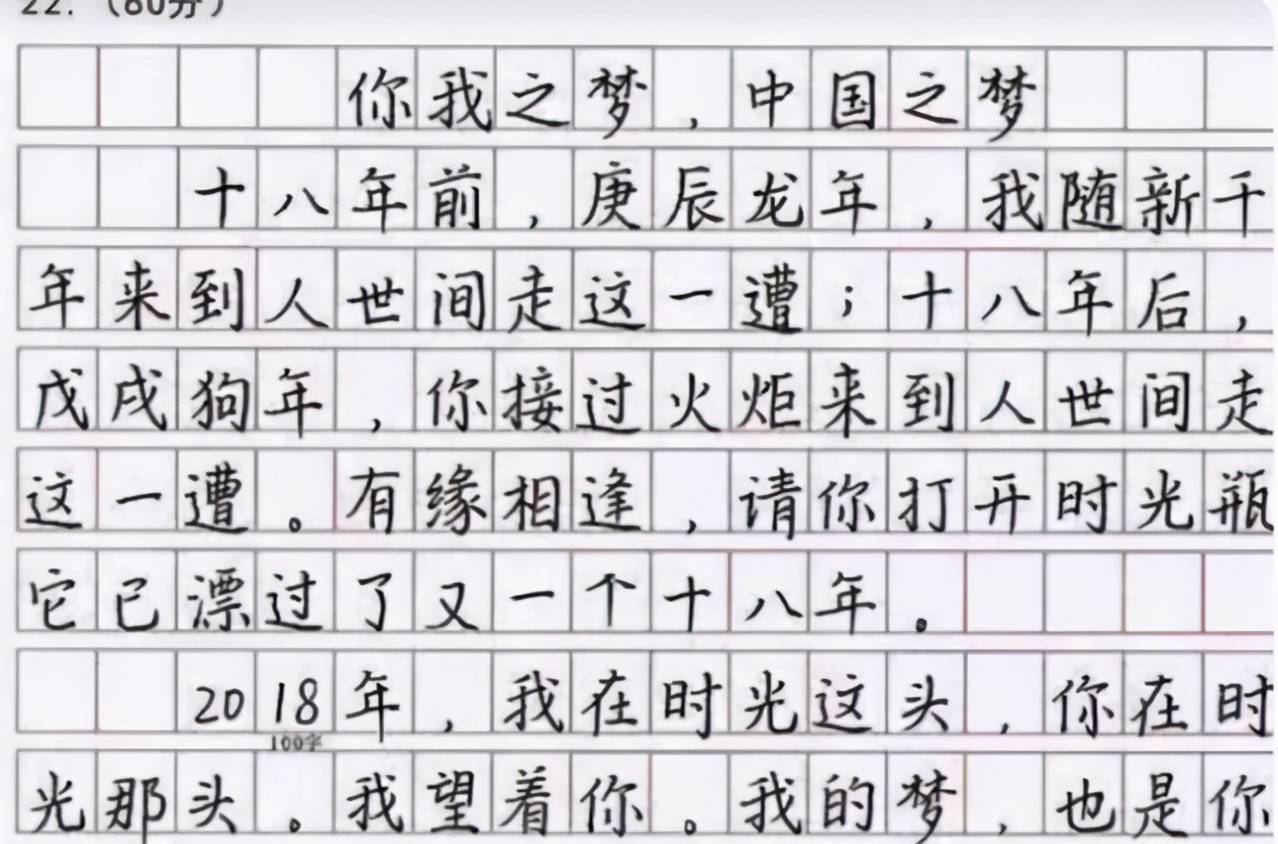 22.（60分）
你我之梦，中国之梦
十八年前，庚辰龙年，我随新千
年来到人世间走这一遭；十八年后，
戊戌狗年，你接过火炬来到人世间走
这一遭。有缘相逢，请你打开时光瓶
它已漂过了又一个十八年。
2018年，我在时光这头，你在时
100字
光那头。我望着你。我的梦，也是你